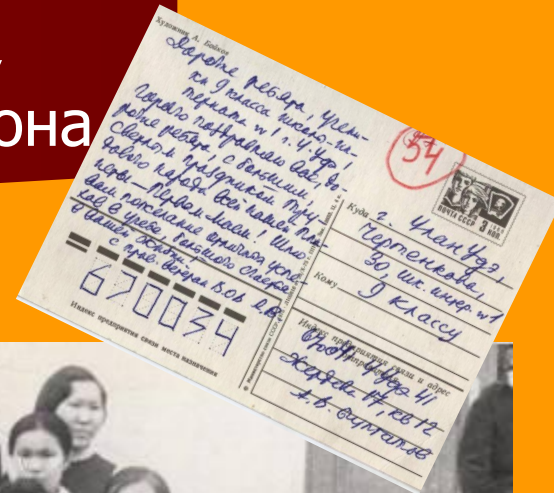 она
Художник А. Бойков
Дорогие ребята, учени-
ки 9 класса школы-ин-
терната № 1 г. У-Удэ
Горячо поздравляю Вас, до-
рогие ребята, с большим
светлым праздником тру-
дового народа всей нашей пла-
неты — Первое Мая! Шлю
Вам пожелание отличных успе-
хов в учебе, большого счастья
в Вашей жизни.
с прив. ветеран ВОВ
670034
Индекс предприятия связи места назначения
54
ПОЧТА СССР 3 КОП.
Куда г. Улан Удэ,
Чертенкова,
30, шк. интер. № 1
Кому
9 классу
Индекс предприятия связи и адрес
У Удэ 41
Жердева 17, кв 12